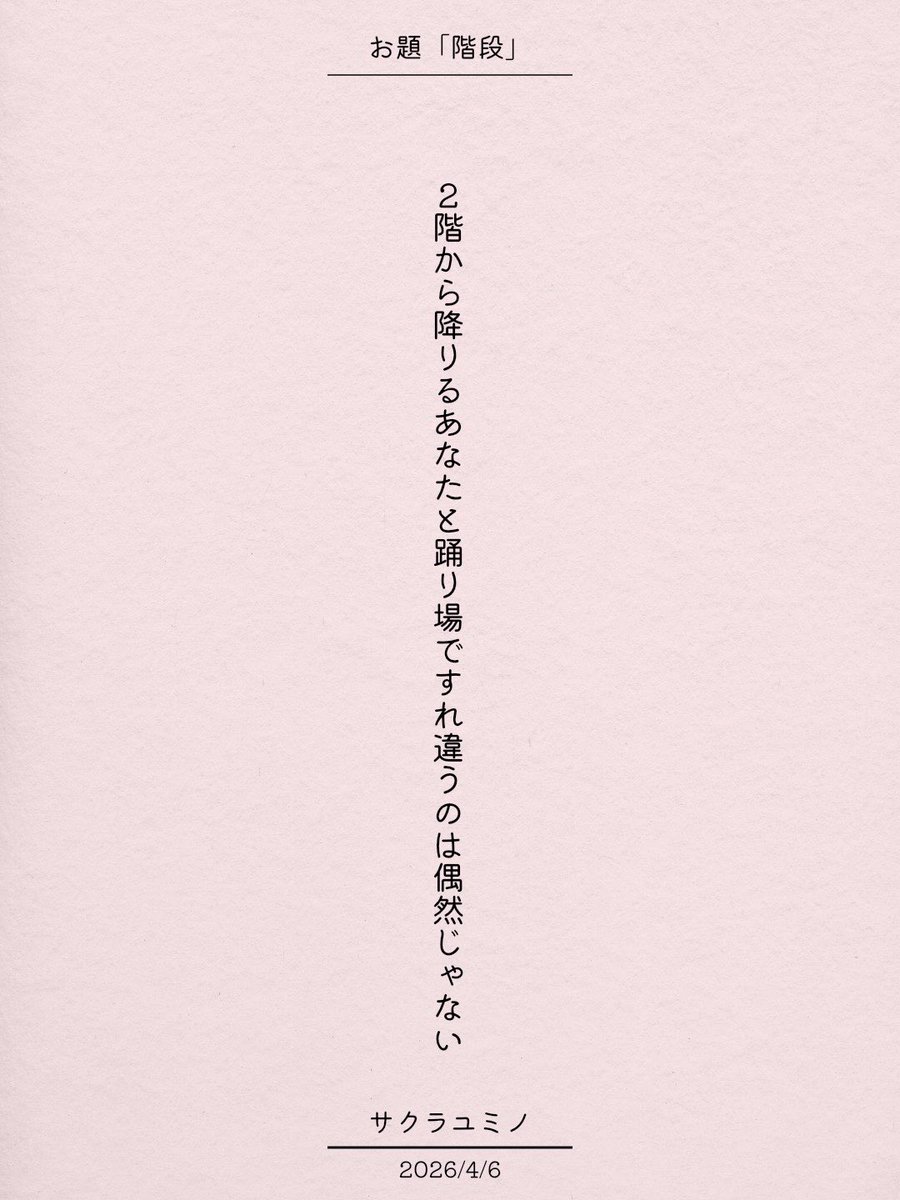 お題「階段」
2階から降りるあなたと踊り場ですれ違うのは偶然じゃない
サクラユミノ
2026/4/6